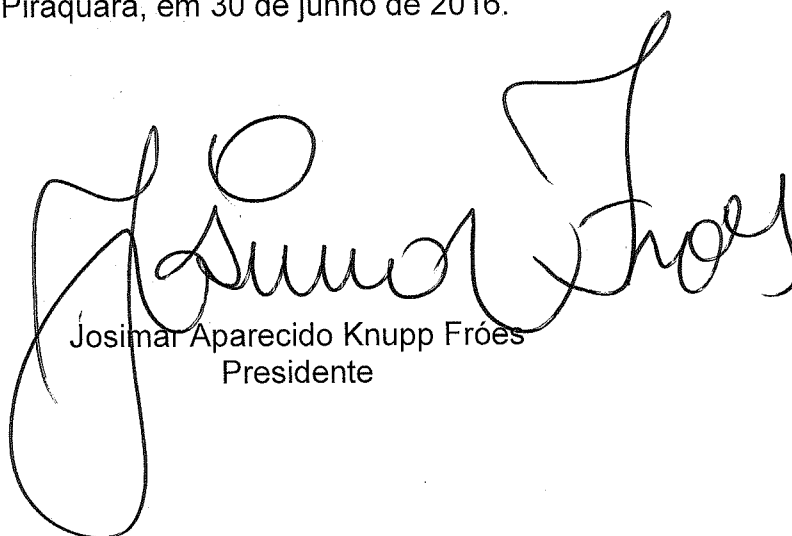 Piraquara, em 30 de junho de 2016.
Josimar Froes
Josimar Aparecido Knupp Fróes
Presidente